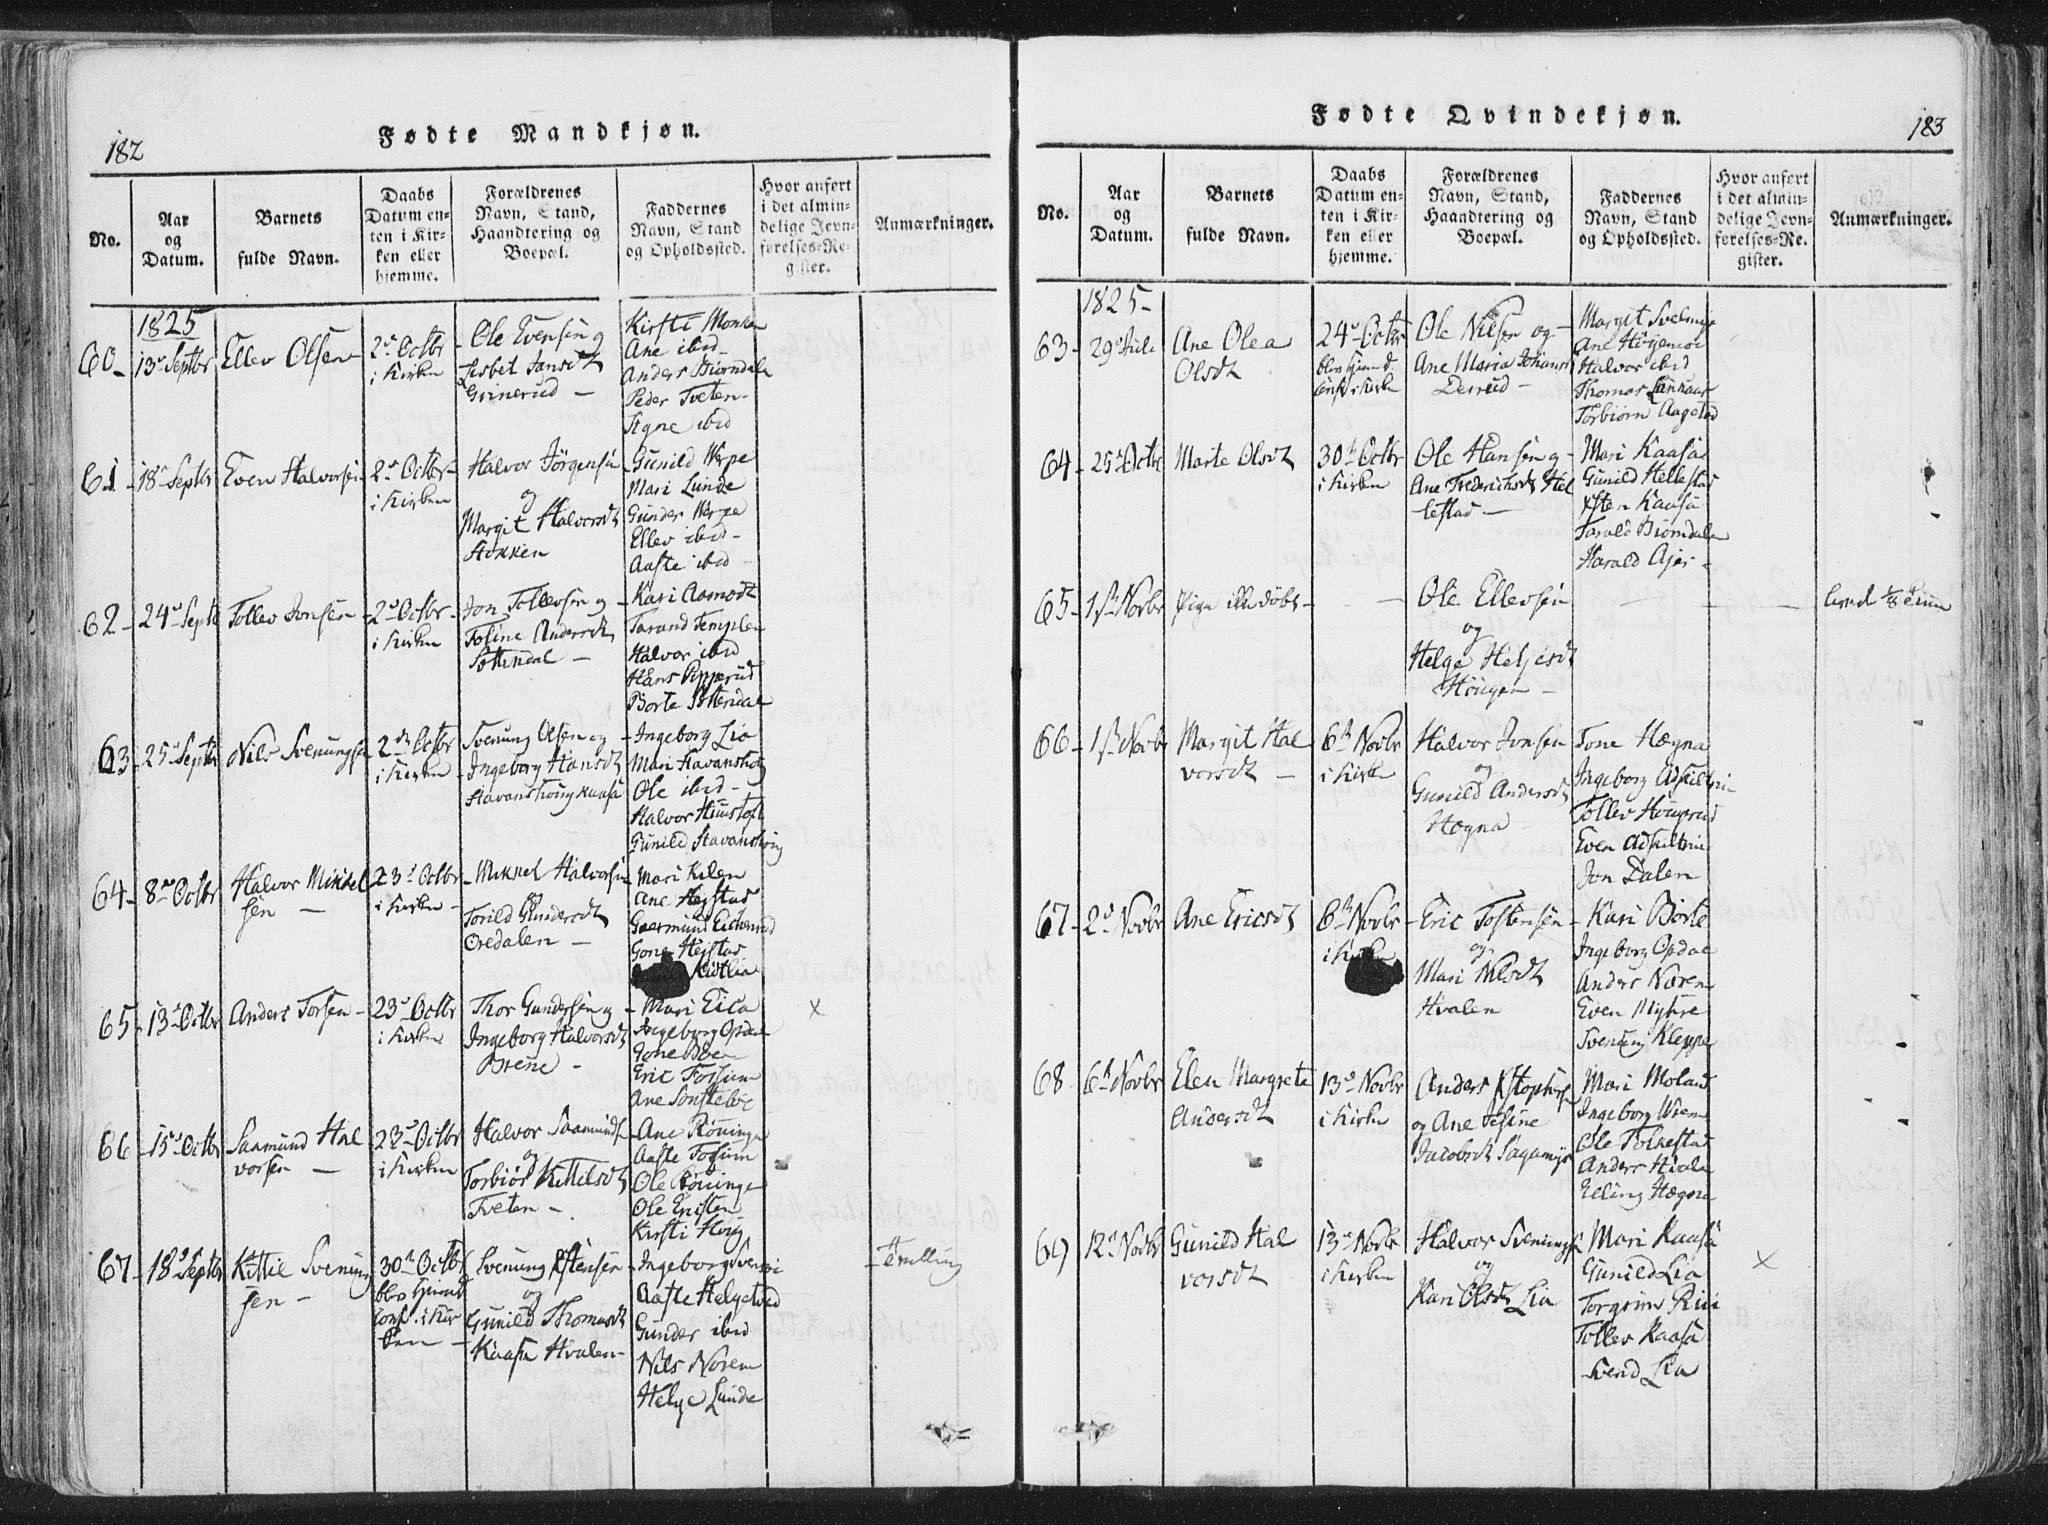 182
Fødte Mandkjøn.
No.
Aar
og
Datum.
Barnets
fulde Navn.
Daabs
Datum en-
ten i Kir-
ken eller
hjemme.
Forældrenes
Navn, Stand,
Haandtering og
Boepæl.
Faddernes
Navn, Stand
og Opholdssted.
Hvor anført
i det almin-
delige Jevn-
førelses-Re-
gister.
Anmærkninger.
1825
60-
13de Septbr
Ellev Olsen
2den Octbr
i Kirken
Ole Evensen og
Lisbet Jansdt
Grinerud -
Kirsti Monken
Ane ibid-
Anders Biørndale
Peder Tveten-
Signe ibid
61
18de Septbr
Even Halvorsen
2den Octbr-
i Kirken
Halvor Jörgensen
og
Margit Halvorsdt
Stokken
Gunild Verpe
Mari Lunde
Gunder Verpe
Ellev ibid-
Aaste ibid-
62
24de Septb
Tollev Jonsen
2den Octbr-
i Kirken
Jon Tollevsen og
Tosine Andersdt
Kari Aamodt
Tarand Templen
Halvor ibid
Hans Pipperud
63
25de Septbr
Nils Svenungsen
2den Octbr
i Kirken
Svenung Olsen og
Ingeborg Hansdt
Stavanshoug Kaasa
Ingeborg Lia
Mari Stavanshoug
Ole ibid-
Halvor
Gunild Stavanshoug
64-
8de Octbr
Halvor Mikkel
sen -
23de Octbr-
i Kirken -
Mikkel Halvorsen
og
Torild Gundersdt
Oredalen -
Mari Kilen
Ane Hejstad
Gone Hejstad
65-
13de Octbr
Anders Torsen-
23de Octbr
i Kirken
Thor Gundersen og
Ingeborg Halvorsdt
Brene -
Mari Eica
Ingeborg Opdal
Eric Fossum
Ane
×
66
15de Octbr
Saamund Hal
vorsen -
23de Octbr
i Kirken
Halvor Saamunds
og
Torbiör Kittilsdt
Tveten -
Ane
Aaste Fossum
Ole
Ole
Kirsti
67-
18de Septbr
Kittil Svenung
sen -
30th Octbr
blev hjemmed
conf. i Kir
ken -
Svenung Østensen
og
Gunild Thomasdt
Kaasa Hvalen-
Ingeborg
Aaste Helgetved
Gunder ibid
Nils Norem
Helge Lunde
Tvilling
183
Fødte Qvindekjøn.
No.
Aar
og
Datum.
Barnets
fulde Navn.
Daabs
Datum en-
ten i Kir-
ken eller
hjemme.
Forældrenes
Navn, Stand,
Haandtering og
Boepæl.
Faddernes
Navn, Stand
og Opholdssted.
Hvor anført
i det almin-
delige Jevn-
førelses-Re-
gister.
Anmærkninger.
1825-
63-
29de Juli
Ane Olea
Olsdt
24de Octbr
blev hjemmed
conf i Kirken
Ole Nilsen og-
Ane Maria Johansd
Margit
Ane
Halvor ibid
Thomas
Torbiorn Aagetad
64-
25de Octbr
Marte Olsdt
30th Octbr
i Kirken
Ole Hansen og-
Ane Frederichsdt Hel
lestad -
Mari Kaasa
Gunild Hellestad
Østen Kaasa
Tarald Biorndalen
Harald Ajer-
65-
1ste Novbr
Pige ikke döbt-
Ole Ellevsen
og
Helge Heljesdt
Hougen -
66-
1ste Novbr
Margit Hal
vorsdt -
6th Novbr
i Kirken
Halvor Jonsen
og
Gunild Andersdt
Hogna -
Tone Hogna
Ingeborg
Tollev
Even
Jon Dalen
67-
2den Novbr
Ane Ericsdt
6th Novbr
i Kirken
Eric Tostensen-
og
Mari Nilsdt
Hvalen
Kari Borte
Ingeborg Opdal
Anders Norem
Even Myhre
Svenung Kleppe
68
6th Novbr
Elen Margrete
Andersdt
13de Novbr
i Kirken
Anders
og Ane
Jacobsdt Sagamyr
Mari Moland
Ingeborg
Ole Folkestad
Anders Hvalen
Elling Hogna
69
12te Novbr
Gunild Hal
vorsdt
13de Novbr
i Kirken
Halvor Svenungsen
og
Kari Olsdt Lia
Mari Kaasa
Gunild Lia
Torgrim Rui
Tollev Kaasa
Svend Lia
×